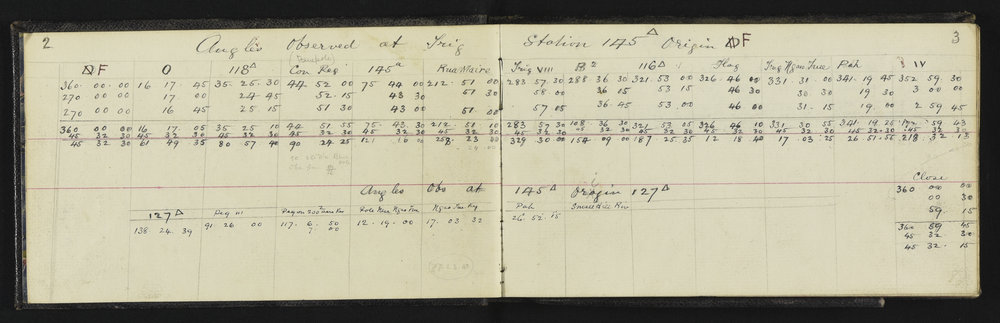 2
3
Angles Observed at Trig Station 145△ Origin F
F O 118△ Con Reg 145a Rua Maire Trig VIII B2 116△ Flag Pah IV
360 00 00 16 17 45 35 25 30 44 52 00 75 44 00 212 51 00 283 57 30 288 36 30 321 53 00 326 46 00 331 31 00 341 19 45 352 59 30
270 00 00 17 00 24 45 52 15 43 30 51 30 58 00 36 15 53 15 46 30 30 30 19 30 3 00 00
270 00 00 16 45 25 15 51 30 43 00 57 05 36 45 53 00 46 00 31 15 19 00 2 59 45
360 00 00 16 17 05 35 25 10 44 51 55 75 43 30 212 51 10 283 57 30 108 36 30 321 53 05 326 46 10 331 30 55 341 19 25 59 43
45 32 30 45 32 30 45 32 30 45 32 30 45 32 30 45 32 30 45 32 30 45 32 30 45 32 30 45 32 30 45 32 30 45 32 30 45 32 30
45 32 30 61 49 35 80 57 40 90 24 25 121 10 00 258 23 00 329 30 00 154 09 00 187 25 35 12 18 40 17 03 25 26 51 55 218 32 13
Close
Angles Obs at 145△ Origin 127△
360 00 00
00 30
59 15
360 59 45
45 32 30
45 32 15
127△ Peg III Pah Small Hill
138 24 39 91 26 00 117 6 50 12 19 00 17 03 32 26 52 15
7 00